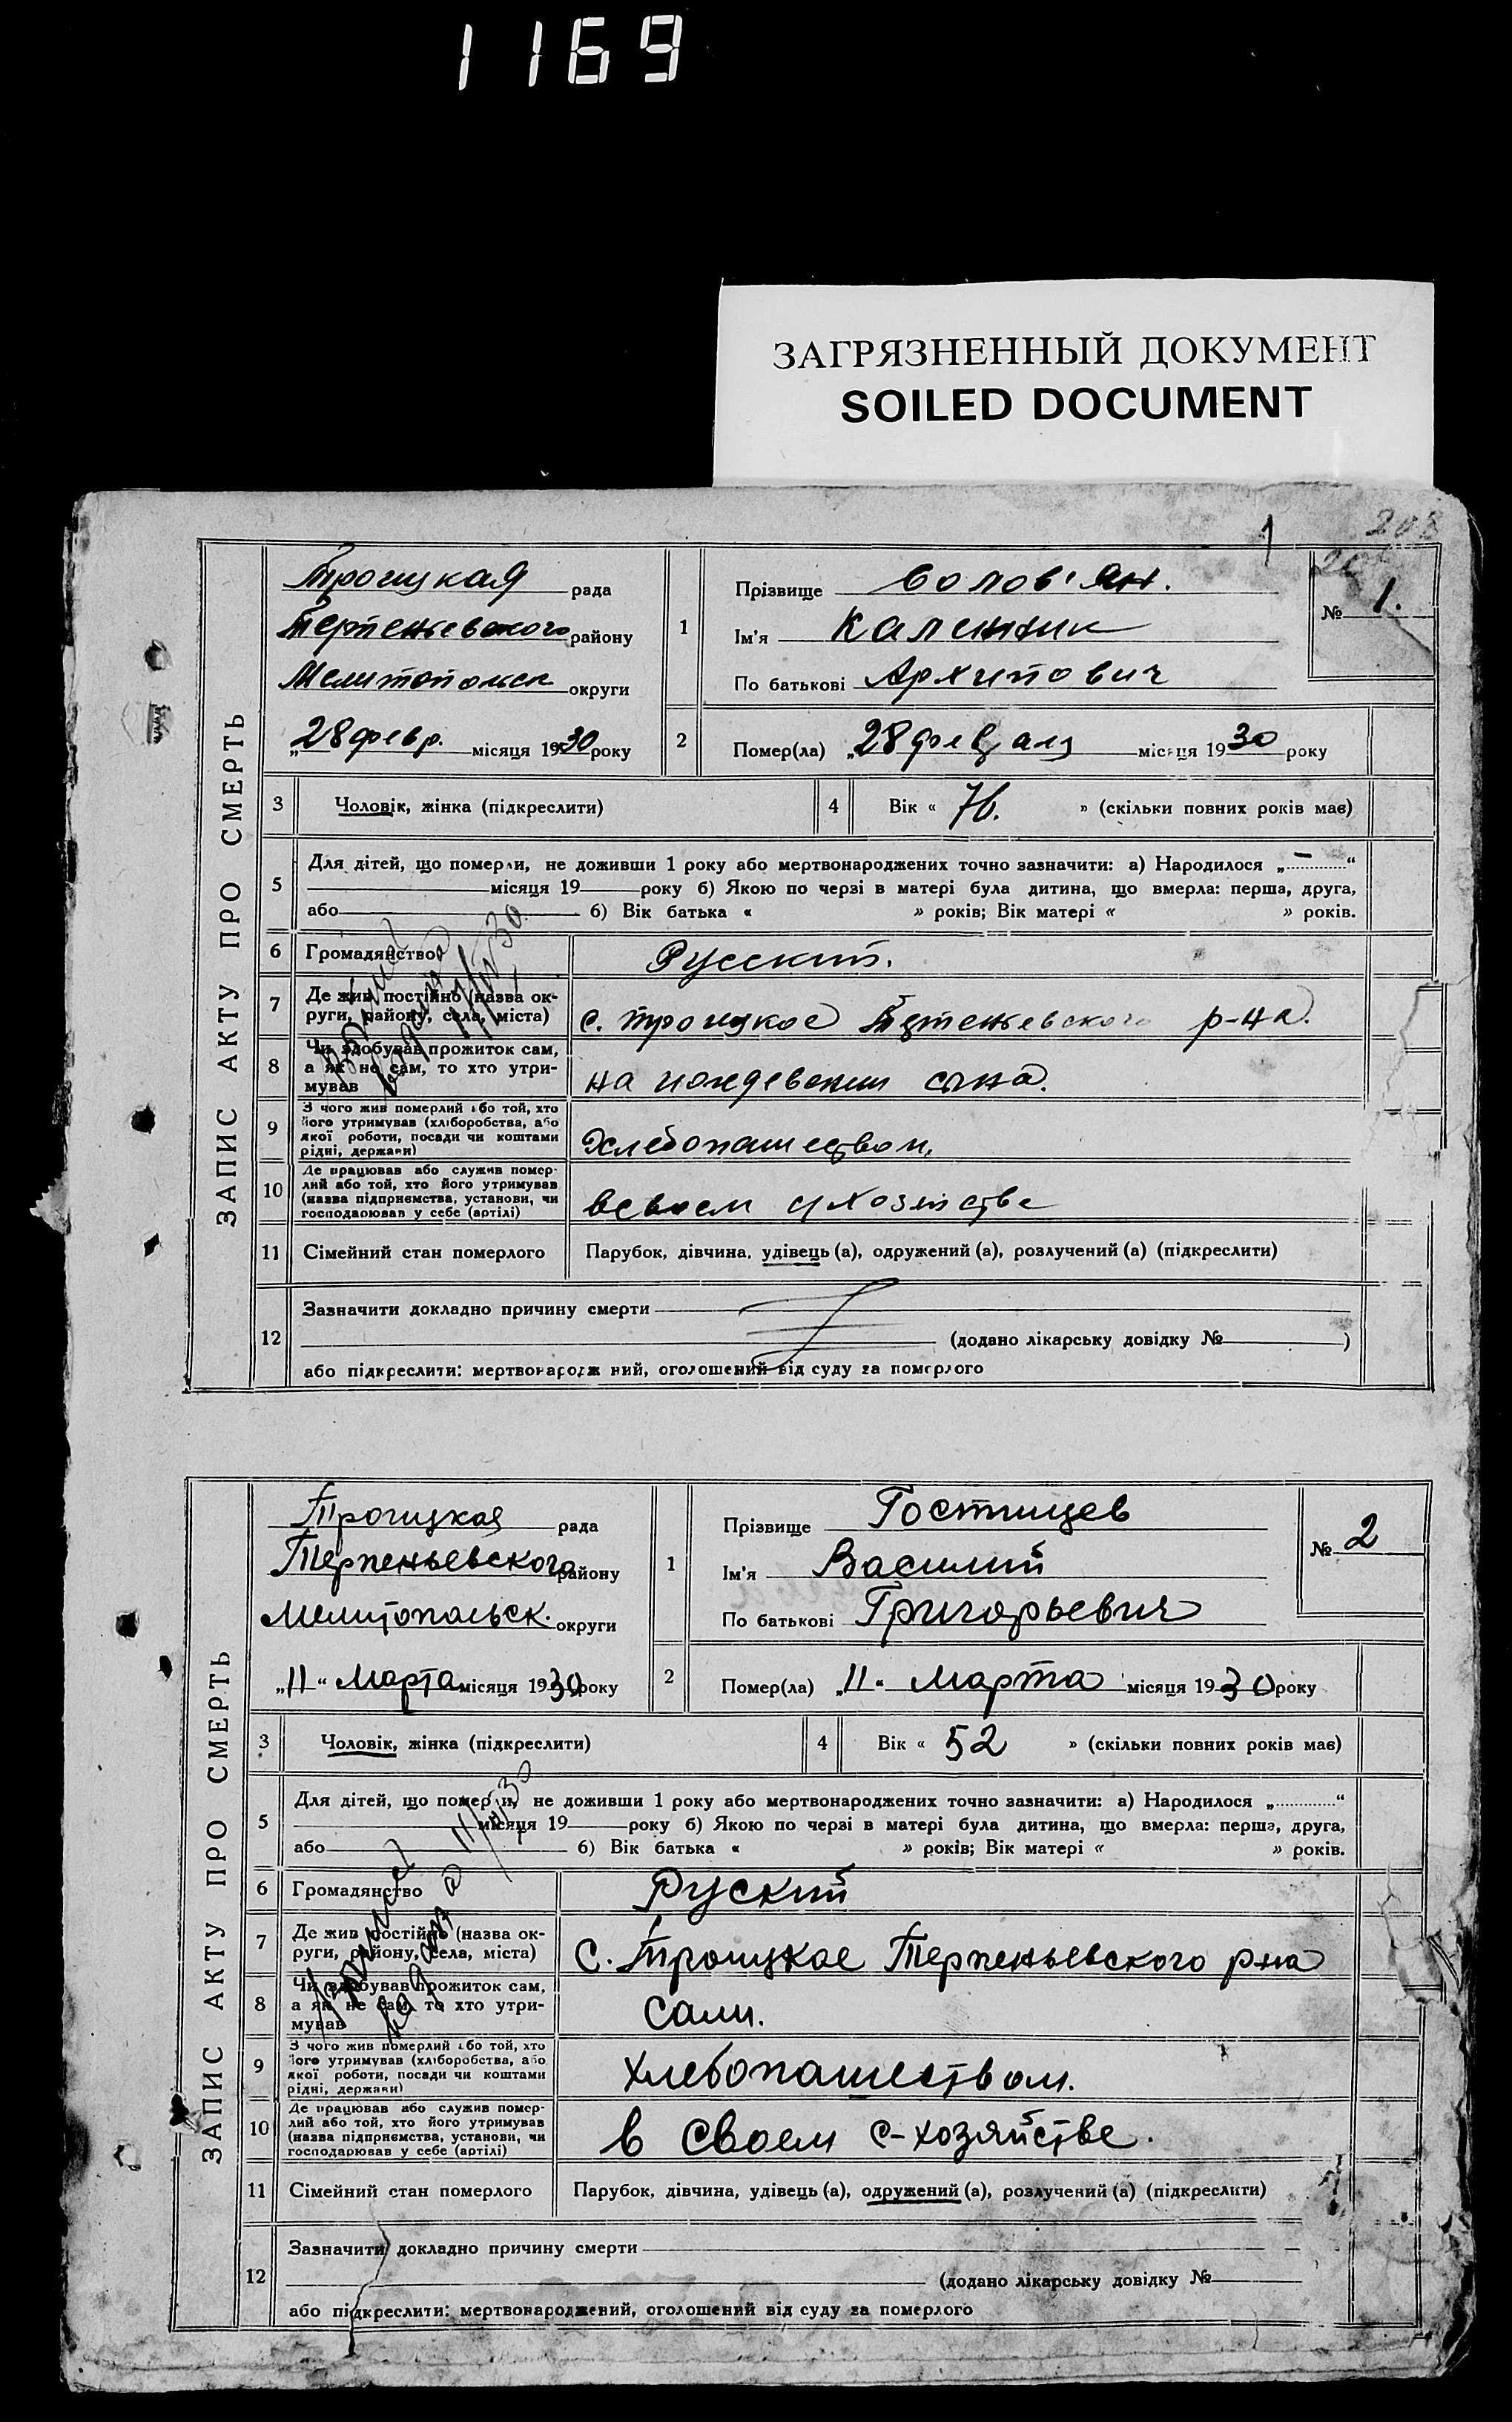 1169
ЗАГРЯЗНЕННЫЙ ДОКУМЕНТ
SOILED DOCUMENT
1 208
ЗАПИС АКТУ ПРО СМЕРТЬ
Троицкая рада
Терпеньевского району
Мелитопольск округи
„28 февр. місяця 1930 року
1 Прізвище Солов'ян.
Ім'я Каленник
По батькові Архипович
№ 1.
2 Помер(ла) „28 февраля місяця 1930 року
3 Чоловік, жінка (підкреслити)
4 Вік « 76. » (скільки повних років має)
5 Для дітей, що померли, не доживши 1 року або мертвонароджених точно зазначити: а) Народилося „ “
місяця 19 року б) Якою по черзі в матері була дитина, що вмерла: перша, друга,
або 6) Вік батька « » років; Вік матері « » років.
6 Громадянство Русский.
7 Де жив постійно (назва ок-
руги, району, села, міста) с. Троицкое Терпеньевского р-на.
8 Чи здобував прожиток сам,
а як не сам, то хто утри-
мував на иждевении сына.
9 З чого жив померлий або той, хто
його утримував (хліборобства, або
якої роботи, посади чи коштами
рідні, держави) Хлебопашеством.
10 Де працював або служив помер-
лий або той, хто його утримував
(назва підприємства, установи, чи
господарював у себе (артілі) в своем с/хозяйстве
11 Сімейний стан померлого Парубок, дівчина, удівець (а), одружений (а), розлучений (а) (підкреслити)
12 Зазначити докладно причину смерти
(додано лікарську довідку № )
або підкреслити: мертвонароджений, оголошений від суду за померлого
ЗАПИС АКТУ ПРО СМЕРТЬ
Троицкая рада
Терпеньевского району
Мелитопальск. округи
„11“ Марта місяця 1930 року
1 Прізвище Гостищев
Ім'я Василий
По батькові Григорьевич
№ 2
2 Помер(ла) „11“ Марта місяця 1930 року
3 Чоловік, жінка (підкреслити)
4 Вік « 52 » (скільки повних років має)
5 Для дітей, що померли, не доживши 1 року або мертвонароджених точно зазначити: а) Народилося „ “
місяця 19 року б) Якою по черзі в матері була дитина, що вмерла: перша, друга,
або 6) Вік батька « » років; Вік матері « » років.
6 Громадянство Руский
7 Де жив постійно (назва ок-
руги, району, села, міста) С. Троицкое Терпеньевского р-на
8 Чи здобував прожиток сам,
а як не сам, то хто утри-
мував Сам.
9 З чого жив померлий або той, хто
його утримував (хліборобства, або
якої роботи, посади чи коштами
рідні, держави) Хлебопашеством.
10 Де працював або служив помер-
лий або той, хто його утримував
(назва підприємства, установи, чи
господарював у себе (артілі) в своем с-хозяйстве.
11 Сімейний стан померлого Парубок, дівчина, удівець (а), одружений (а), розлучений (а) (підкреслити)
12 Зазначити докладно причину смерти
(додано лікарську довідку №
або підкреслити: мертвонароджений, оголошений від суду за померлого